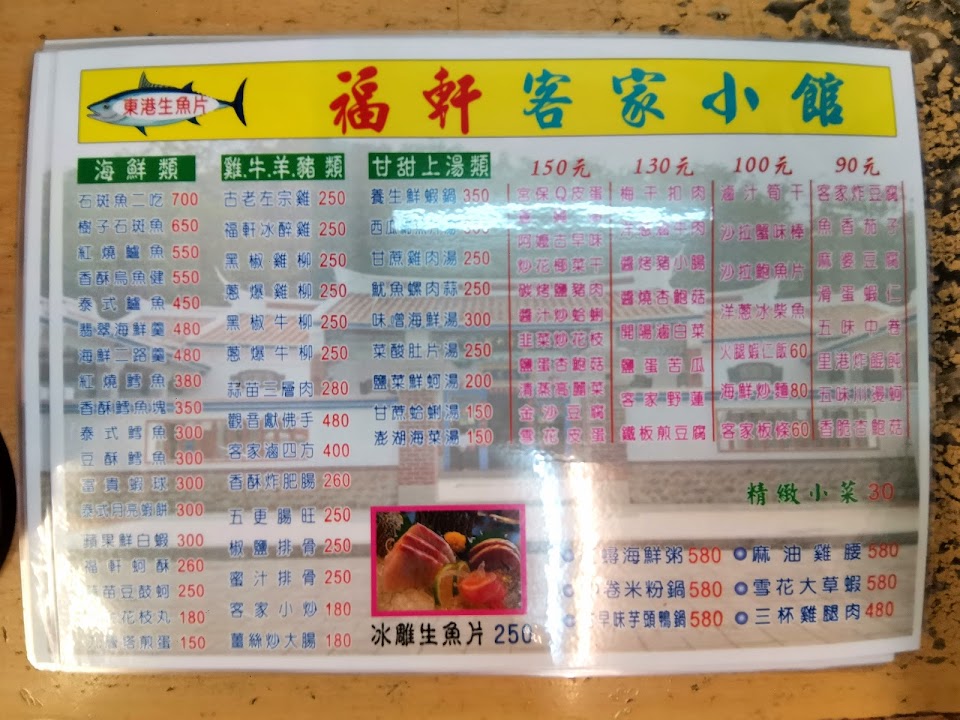 東港生魚片
福軒客家小館
海鮮類
石斑魚二吃 700
樹子石斑魚 650
紅燒鱸魚 550
香酥烏魚健 550
泰式鱸魚 450
翡翠海鮮羹 480
海鮮二路羹 480
紅燒鱈魚 380
香酥鱈魚塊 350
泰式鱈魚 300
豆酥鱈魚 300
富真蝦球 300
泰式月亮蝦餅 300
蘋果鮮白蝦 300
福軒蚵酥 260
苗豆鼓蚵 250
花枝丸 180
塔煎蛋 150
雞.牛.羊.豬類
古老左宗雞 250
福軒冰醉雞 250
黑椒雞柳 250
蔥爆雞柳 250
黑椒牛柳 250
蔥爆牛柳 250
蒜苗三層肉 280
觀音獻佛手 480
客家滷四方 400
香酥炸肥腸 260
五更腸旺 250
椒鹽排骨 250
蜜汁排骨 250
客家小炒 180
薑絲炒大腸 180
甘甜上湯類
養生鮮蝦鍋 350
西瓜
甘蔗雞肉湯 250
魷魚螺肉蒜 250
味噌海鮮湯 300
菜酸肚片湯 250
鹽菜鮮蚵湯 200
甘蔗蛤蜊湯 150
澎湖海菜湯 150
150元
宮保Q皮蛋
阿嬤古早味
炒花椰菜干
碳烤鹽豬肉
醬汁炒蛤蜊
韭菜炒花枝
鹽蛋杏鮑菇
清蒸高麗菜
金沙豆腐
雪花皮蛋
130元
梅干扣肉
洋蔥滷牛肉
醬烤豬小腸
醬燒杏鮑菇
開陽滷白菜
鹽蛋苦瓜
客家野蓮
鐵板煎豆腐
100元
滷汁筍干
沙拉蟹味棒
沙拉鮑魚片
洋蔥冰柴魚
火腿蝦仁飯 60
海鮮炒麵 80
客家板條 60
90元
客家炸豆腐
魚香茄子
麻婆豆腐
滑蛋蝦仁
五味中卷
里港炸餛飩
五味川燙蚵
香脆杏鮑菇
精緻小菜 30
海鮮粥 580
卷米粉鍋 580
早味芋頭鴨鍋 580
麻油雞腰 580
雪花大草蝦 580
三杯雞腿肉 480
冰雕生魚片 250